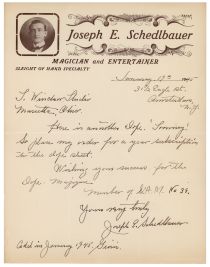 Joseph E. Schedlbauer
MAGICIAN and ENTERTAINER
SLEIGHT OF HAND SPECIALTY
January 17th
Eagle St.
N.Y.
Marietta, Ohio.
Here is another Dope.
So place my order for a year subscription
to the dope sheet.
Wishing you success for the
Dope
Member of S.A.M. No 39.
Yours very truly
Joseph E. Schedlbauer
Add. in January